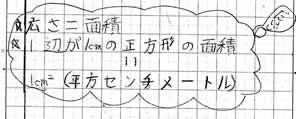 広さ＝面積
1辺が1cmの正方形の面積
＝
1cm²（平方センチメートル）